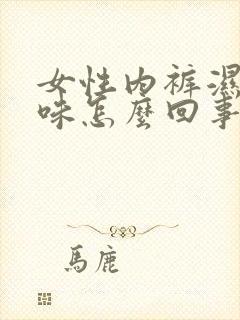 女性内裤濕
味怎麼回事
馬鹿